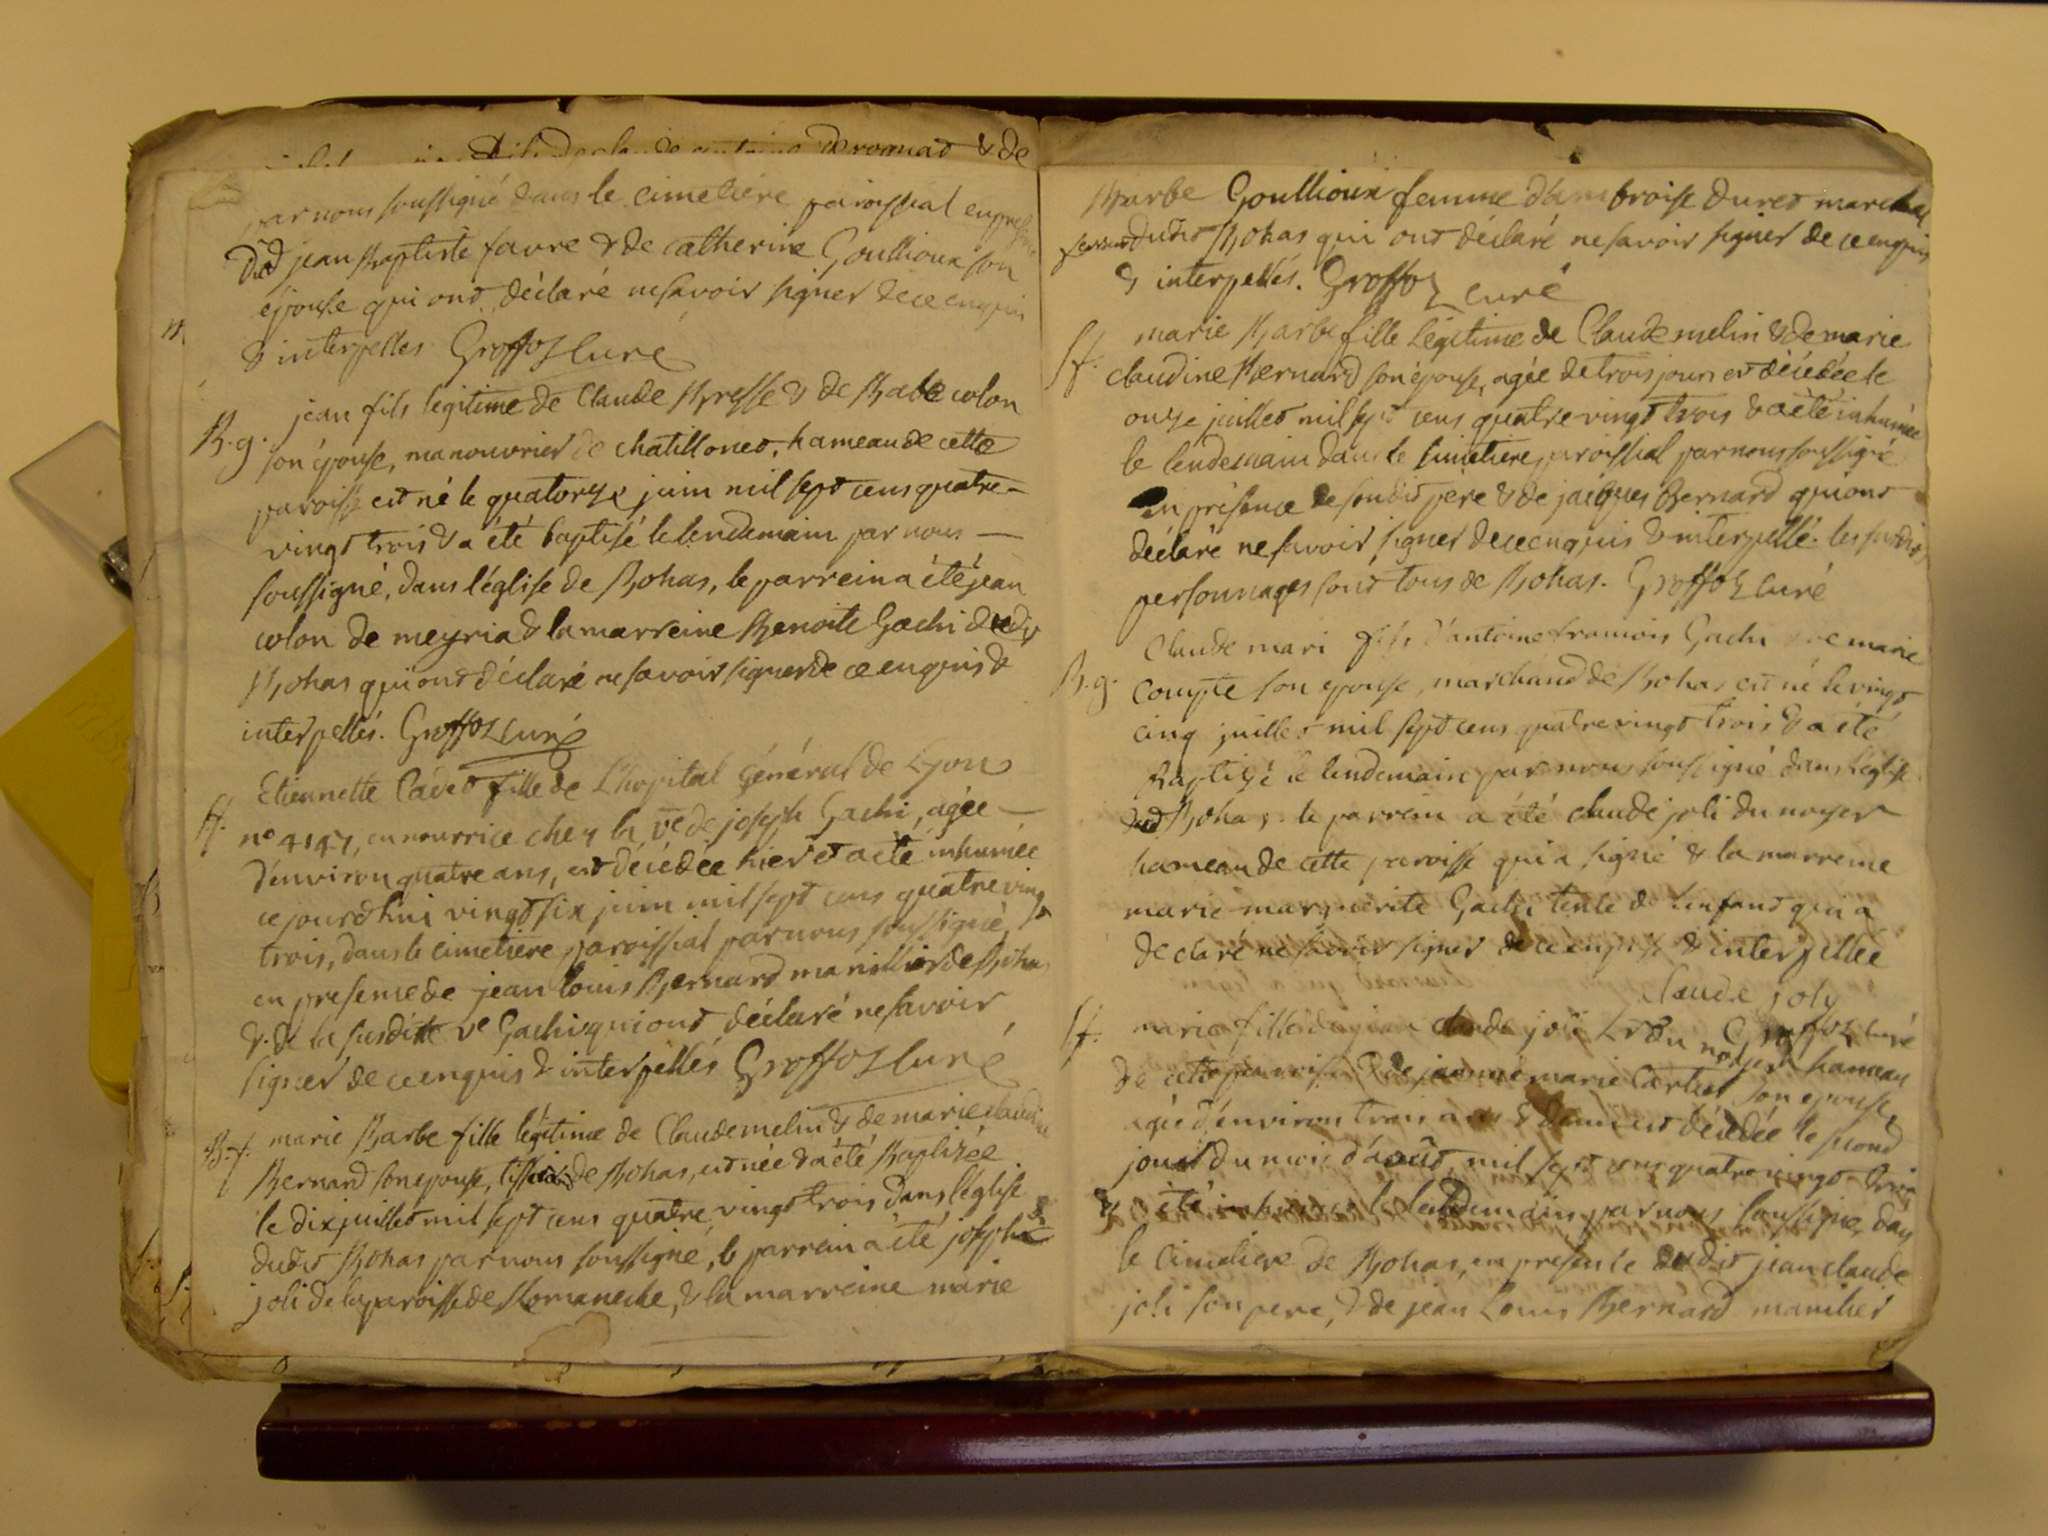 de romnad & de
par nous soussigné dans le cimetière paroissial en presence
dud jean Baptiste favre & de catherine Goullioux son
épouse qui ont déclaré ne savoir signer de ce enquis
& interpelles Groffoz curé
B.g. jean fils légitime de Claude Bresse & de Babe colon
son épouse, manouvrier de chatillonet, hameau de cette
paroisse est né le quatorze juin mil sept cens quatre-
vingt trois & a été baptisé le lendemain par nous
soussigné, dans l'église de Bohas, le parrein a été jean
colon de meyria & la marreine Benoite Gachi dudit
Bohas qui ont déclaré ne savoir signer de ce enquis &
interpellés. Groffoz curé
Etiennette Cavet fille de L'hopital Général de Lyon
Sf. n° 4147, en nourrice chez la ve de joseph Gachi, agée
d'environ quatre ans, est décédée hier et a été inhumée
ce jourd'hui vingt six juin mil sept cens quatre vingt
trois, dans le cimetiere paroissial par nous soussigné,
en presence de jean louis Bernard manillier de Bohas
& de la susdite ve Gachi qui ont déclaré ne savoir
signer de ce enquis & interpellés Groffoz curé
B.f. marie Barbe fille légitime de Claude melin & de marie claudine
Bernard son epouse, tissier de Bohas, est née & a été Baptizée
le dix juillet mil sept cens quatre vingt trois dans l'église
dudit Bohas par nous soussigné, le parrein a été joseph
joli de la paroisse de Romaneche, & la marreine marie
Barbe Goullioux femme d'ambroise duret marchal
ferrant dudit Bohas qui ont déclaré ne savoir signer de ce enquis
& interpellés. Groffoz curé
marie Barbe fille légitime de Claude melin & de marie
Sf. claudine Bernard son épouse, agée de trois jours est décédée le
onze juillet mil sept cens quatre vingt trois & a été inhumée
le lendemain dans le cimetiere paroissial par nous soussigné
en présence de sondit père & de jacques Bernard qui ont
déclaré ne savoir signer de ce enquis & interpellé. les susdits
personnages sont tous de Bohas. Groffoz curé
Claude mari fils d'antoine francois Gachi & de marie
B.g. Compte son epouse, marchand de Bohas est né le vingt
cinq juillet mil sept cens quatre vingt trois & a été
Baptizé le lendemain par nous soussigné dans l'église
dud Bohas. le parrein a été claude joli du noyer
hameau de cette paroisse qui a signé & la marreine
marie marguerite Gachi tente de l'enfant qui a
declaré ne savoir signer de ce enquise & interpellée
Claude joly
Groffoz curé
Sf. marie fille de jean claude joli du noyer hameau
de cette paroisse & de jeanne marie Carlet son epouse,
agée d'environ trois ans & demi est décédée le second
jour du mois d'août mil sept cens quatre vingt trois
& a été inhumée le lendemain par nous soussigné, dans
le Cimetiere de Bohas, en presence dudit jean claude
joli son pere, & de jean Louis Bernard manilier